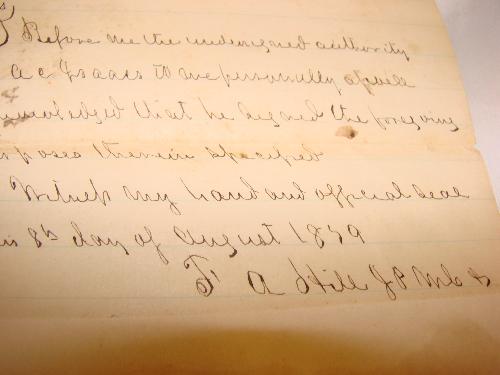 Before me the undersigned authority
A C Isaacs to me personally
that he signed the foregoing
therein specified
Witness my hand and official seal
8th day of August 1879
F A Hill J P